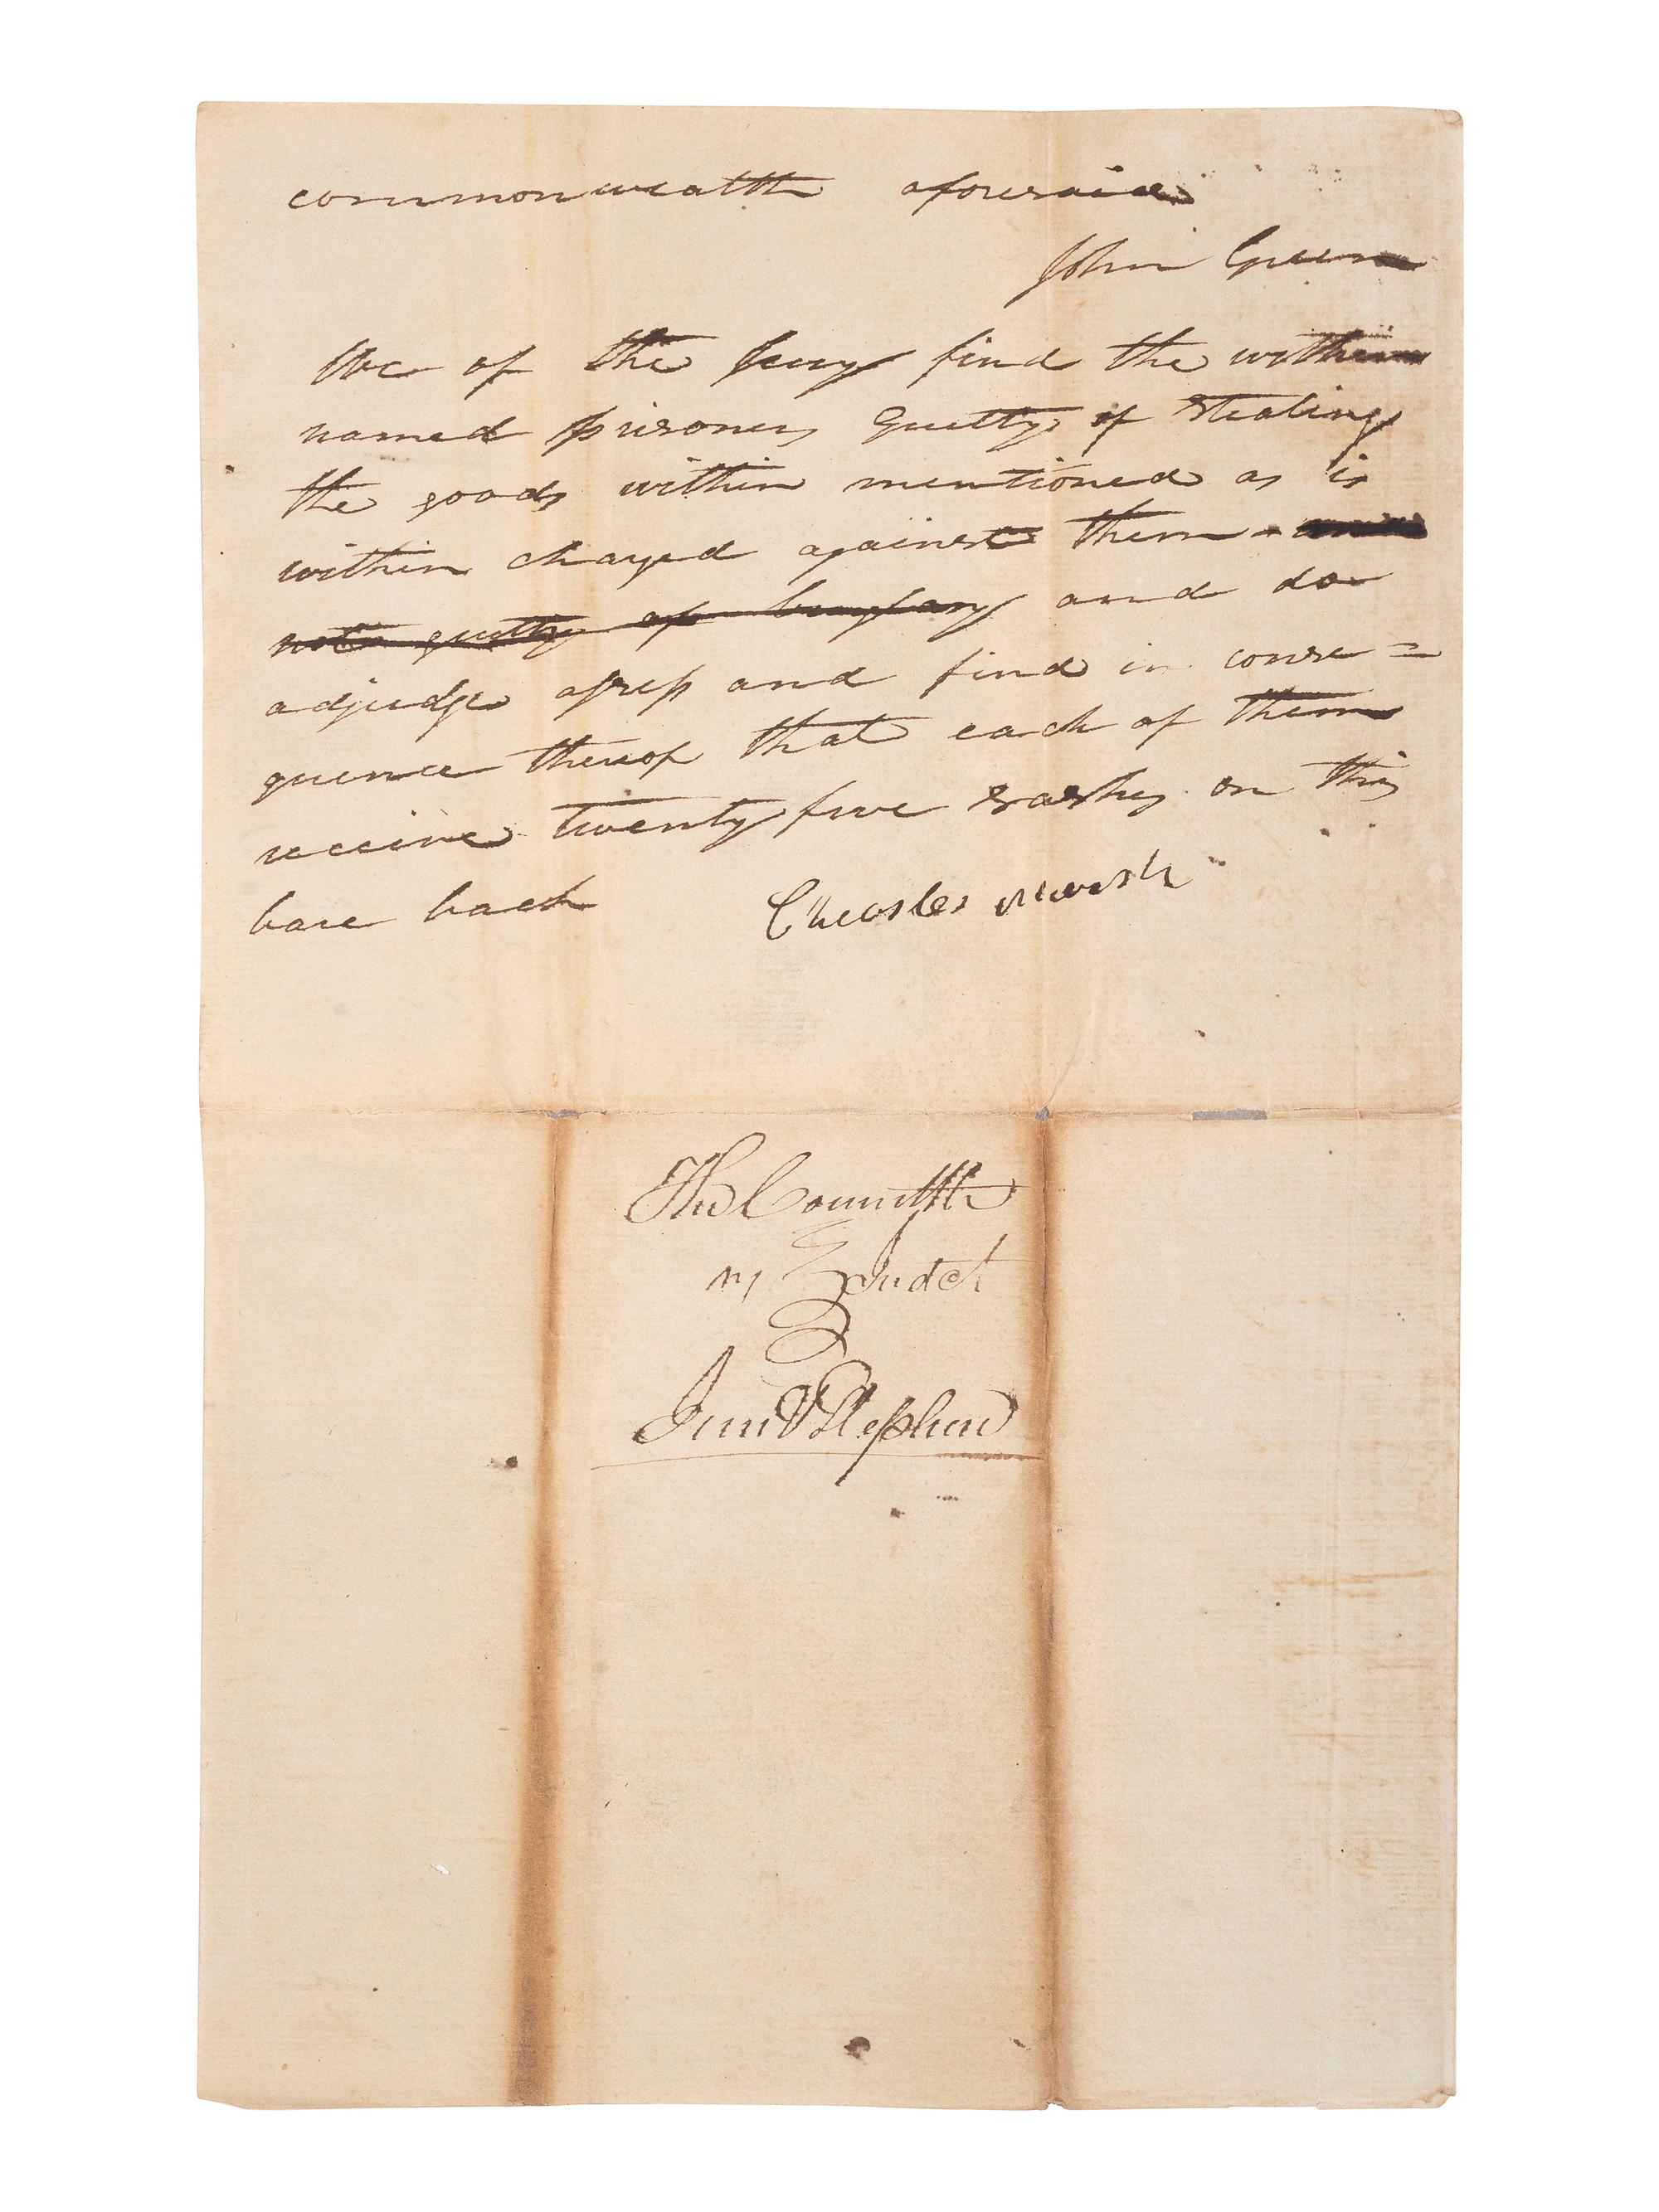 commonwealth aforesaid
John Green
We of the Jury find the within
named prisoners Guilty of stealing
the goods within mentioned as is
within charged against them and
not guilty of burglary and do
adjudge assess and find in conse=
quence thereof that each of them
receive twenty five lashes on this
bare back
The Commth
vs Indct
Jim & Stephen